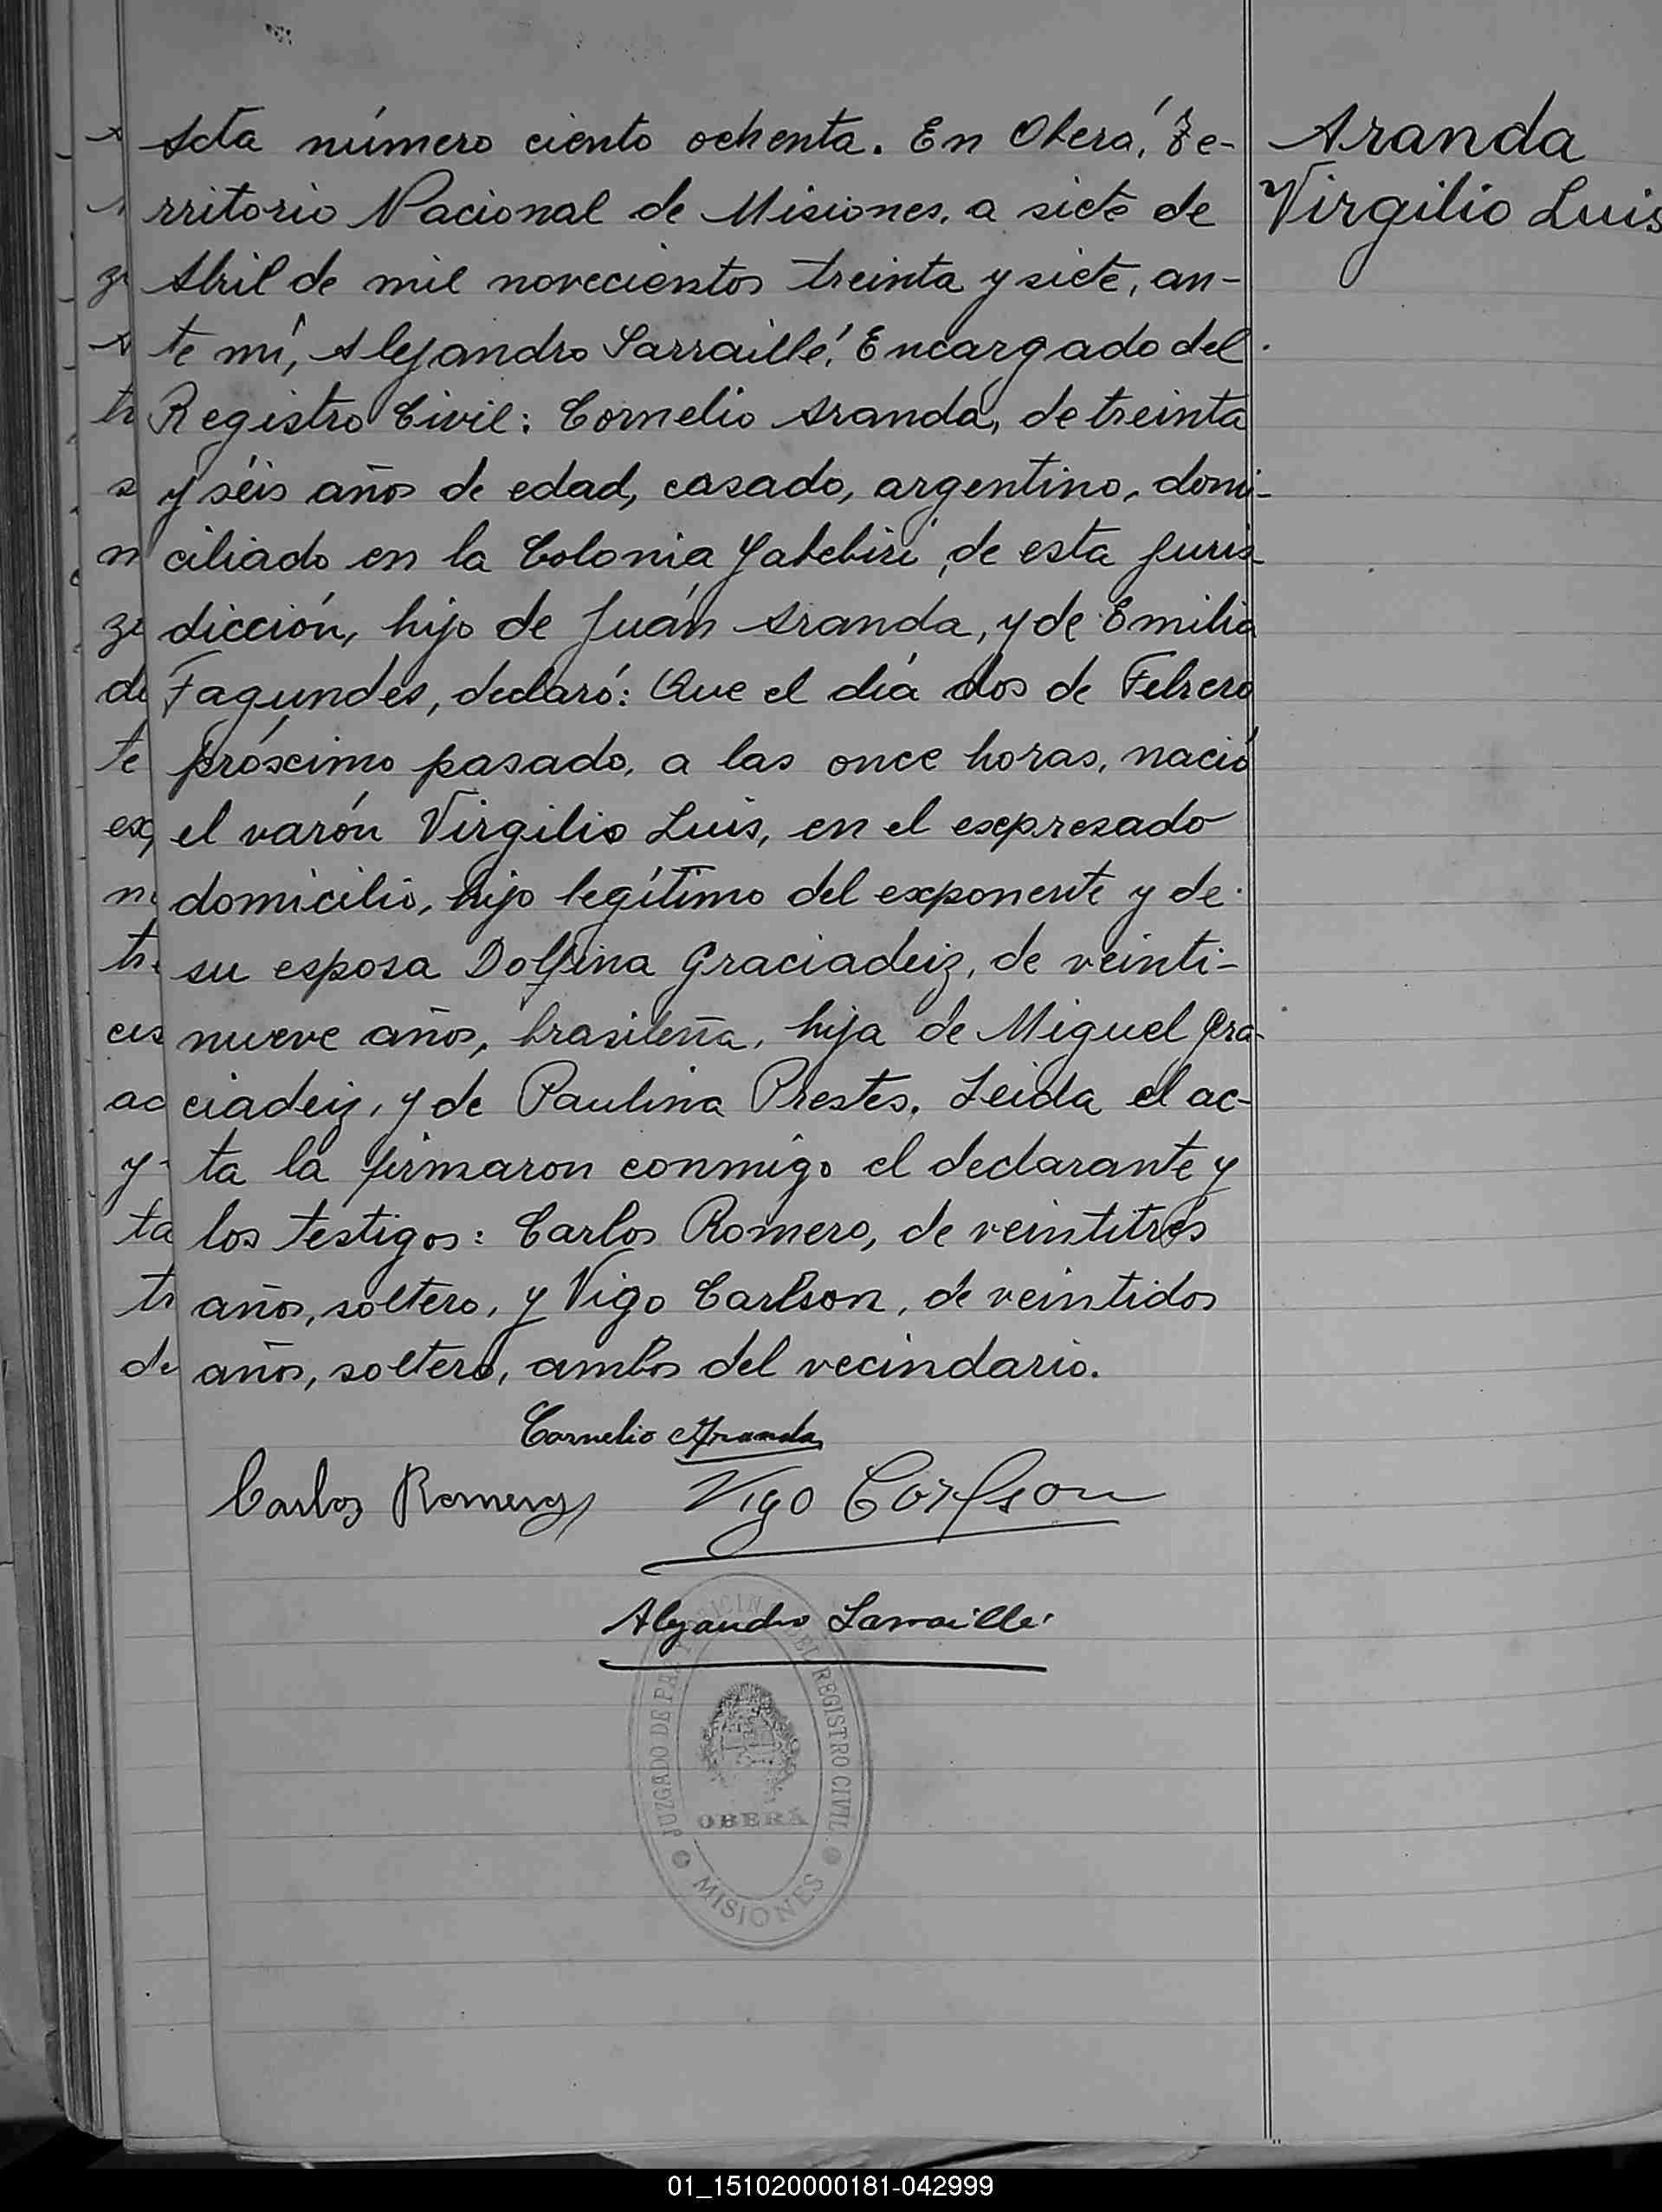 Acta número ciento ochenta. En Oberá, Te-
rritorio Nacional de Misiones, a siete de
Abril de mil novecientos treinta y siete, an-
te mí, Alejandro Sarraillé, Encargado del
Registro Civil: Cornelio Aranda, de treinta
y séis años de edad, casado, argentino, domi-
ciliado en la Colonia Yabebiri, de esta juris-
dicción, hijo de Juán Aranda, y de Emilia
Fagundes, declaró: Que el día dos de Febrero
próximo pasado, a las once horas, nació
el varón Virgilio Luis, en el expresado
domicilio, hijo legítimo del exponente y de
su esposa Dolfina Graciadeiz, de veinti-
nueve años, brasileña, hija de Miguel Gra-
ciadeiz, y de Paulina Prestes. Leida el ac-
ta la firmaron conmigo el declarante y
los testigos: Carlos Romero, de veintitrés
años, soltero, y Vigo Carlson, de veintidos
años, soltero, ambos del vecindario.
Aranda
Virgilio Luis
Cornelio Aranda
Carlos Romero Vigo Carlson
Alejandro Sarraillé
JUZGADO DE PAZ Y OFICINA DEL REGISTRO CIVIL
OBERÁ
MISIONES
01_151020000181-042999